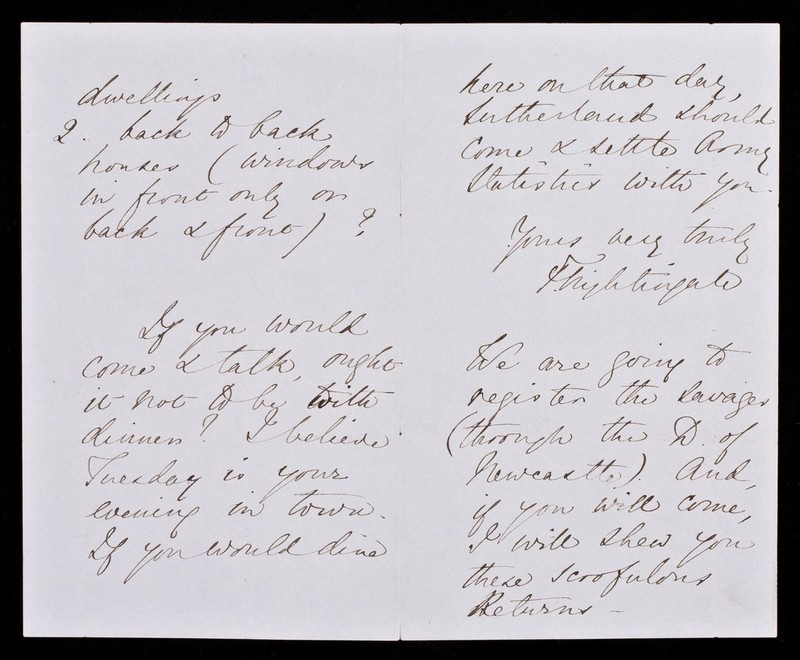 dwellings
2. back to back
houses (windows
in front only or
back & front)?
If you would
come & talk, ought
it not to be with
dinner? I believe
Tuesday is your
evening in town.
If you would dine
here on that day,
Sutherland should
come & settle Army
Statistics with you.
Yours very truly
F. Nightingale
We are going to
register the savages
(through the D. of
Newcastle). And,
if you will come,
I will shew you
these scrofulous
Returns –